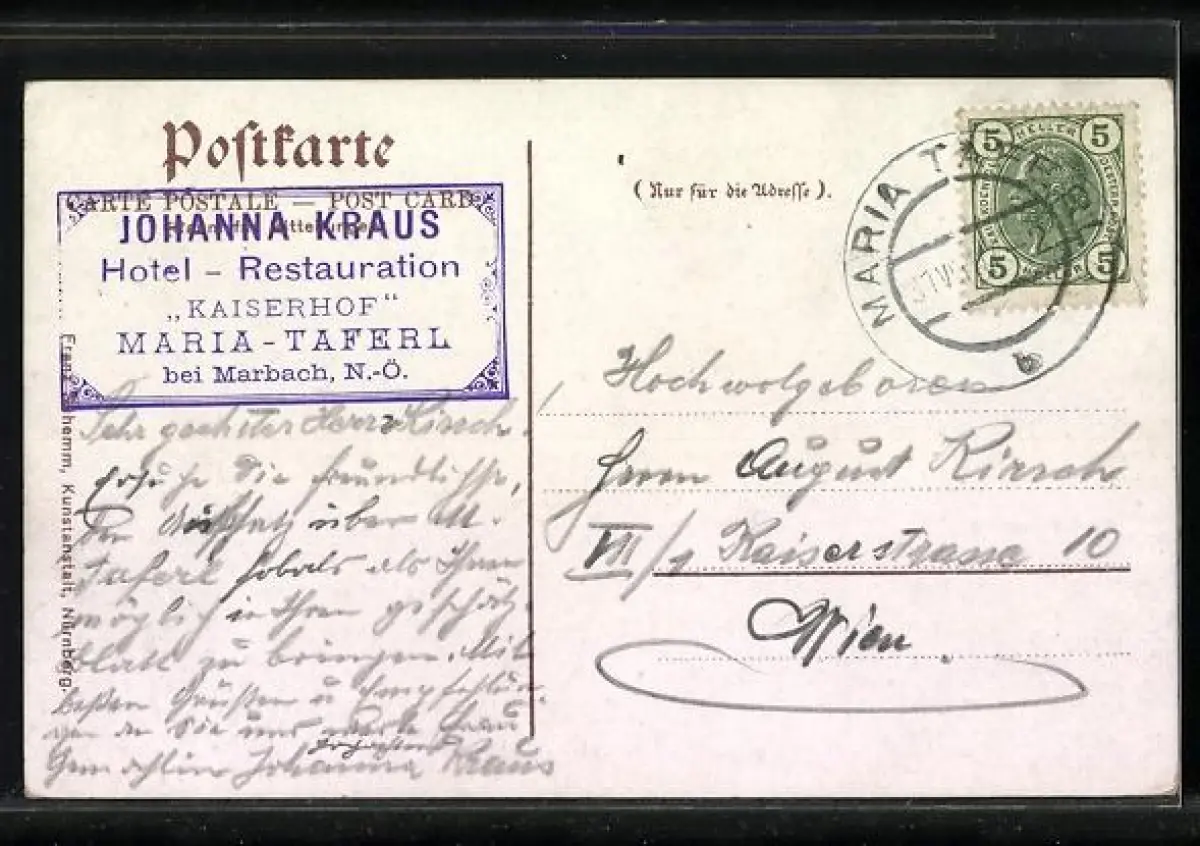 Postkarte
CARTE POSTALE — POST CARD
JOHANNA KRAUS
Hotel – Restauration
„KAISERHOF“
MARIA-TAFERL
bei Marbach, N.-Ö.
Sehr geehrter Herr Kirsch.
Ersuche Sie freundlichst,
den Aufsatz über M.
Taferl sobald als Ihnen
möglich in Ihren geschätz.
Blatt zu bringen. Mit
besten Grüßen u Empfehlun
gen an Sie und werte Frau
Gemahlin Johanna Kraus
Kunstanstalt, Nürnberg.
(Nur für die Adresse).
MARIA TAFERL
5 HELLER 5
5 HELLER 5
b
Hochwolgeboren
Herrn August Kirsch
VII/1 Kaiserstrasse 10
Wien